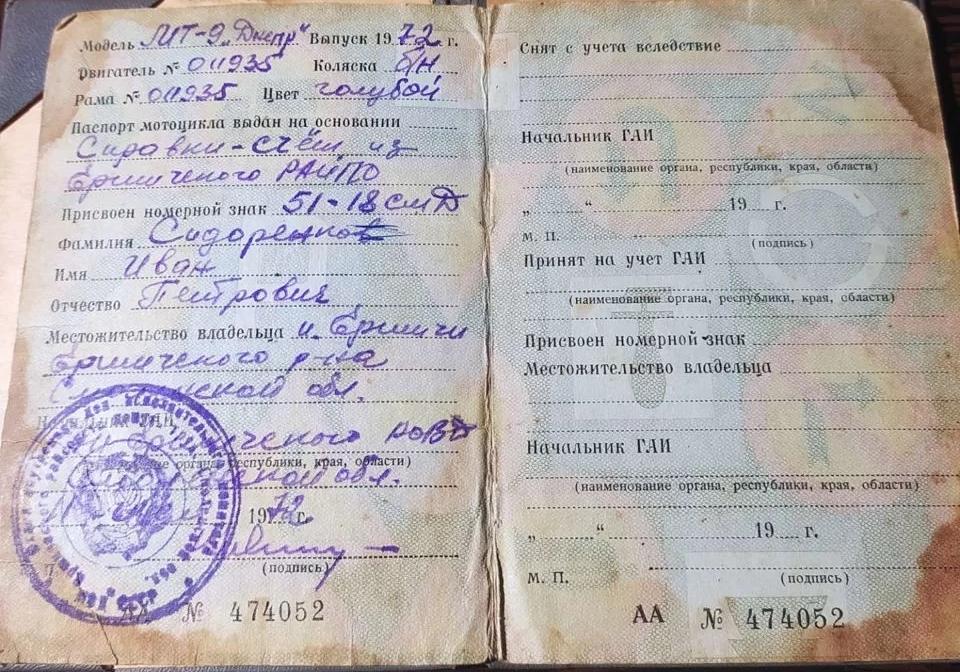 Модель МТ-9 „Днепр" Выпуск 1972 г.
Двигатель № 011935 Коляска б/н
Рама № 011935 Цвет голубой
Паспорт мотоцикла выдан на основании
Справки-счёт из
Ершичского РАЙПО
Присвоен номерной знак 51-18 смД
Фамилия Сидоренков
Имя Иван
Отчество Петрович
Местожительство владельца Ершичи
Ершичского р-на
Смоленской обл.
Начальник ГАИ
Ершичского РОВД
(наименование органа, республики, края, области)
Смоленской обл.
1972 г.
(подпись)
АА № 474052
Снят с учета вследствие
Начальник ГАИ
(наименование органа, республики, края, области)
„ “ 19 г.
М. П. (подпись)
Принят на учет ГАИ
(наименование органа, республики, края, области)
Присвоен номерной знак
Местожительство владельца
Начальник ГАИ
(наименование органа, республики, края, области)
„ “ 19 г.
М. П. (подпись)
АА № 474052